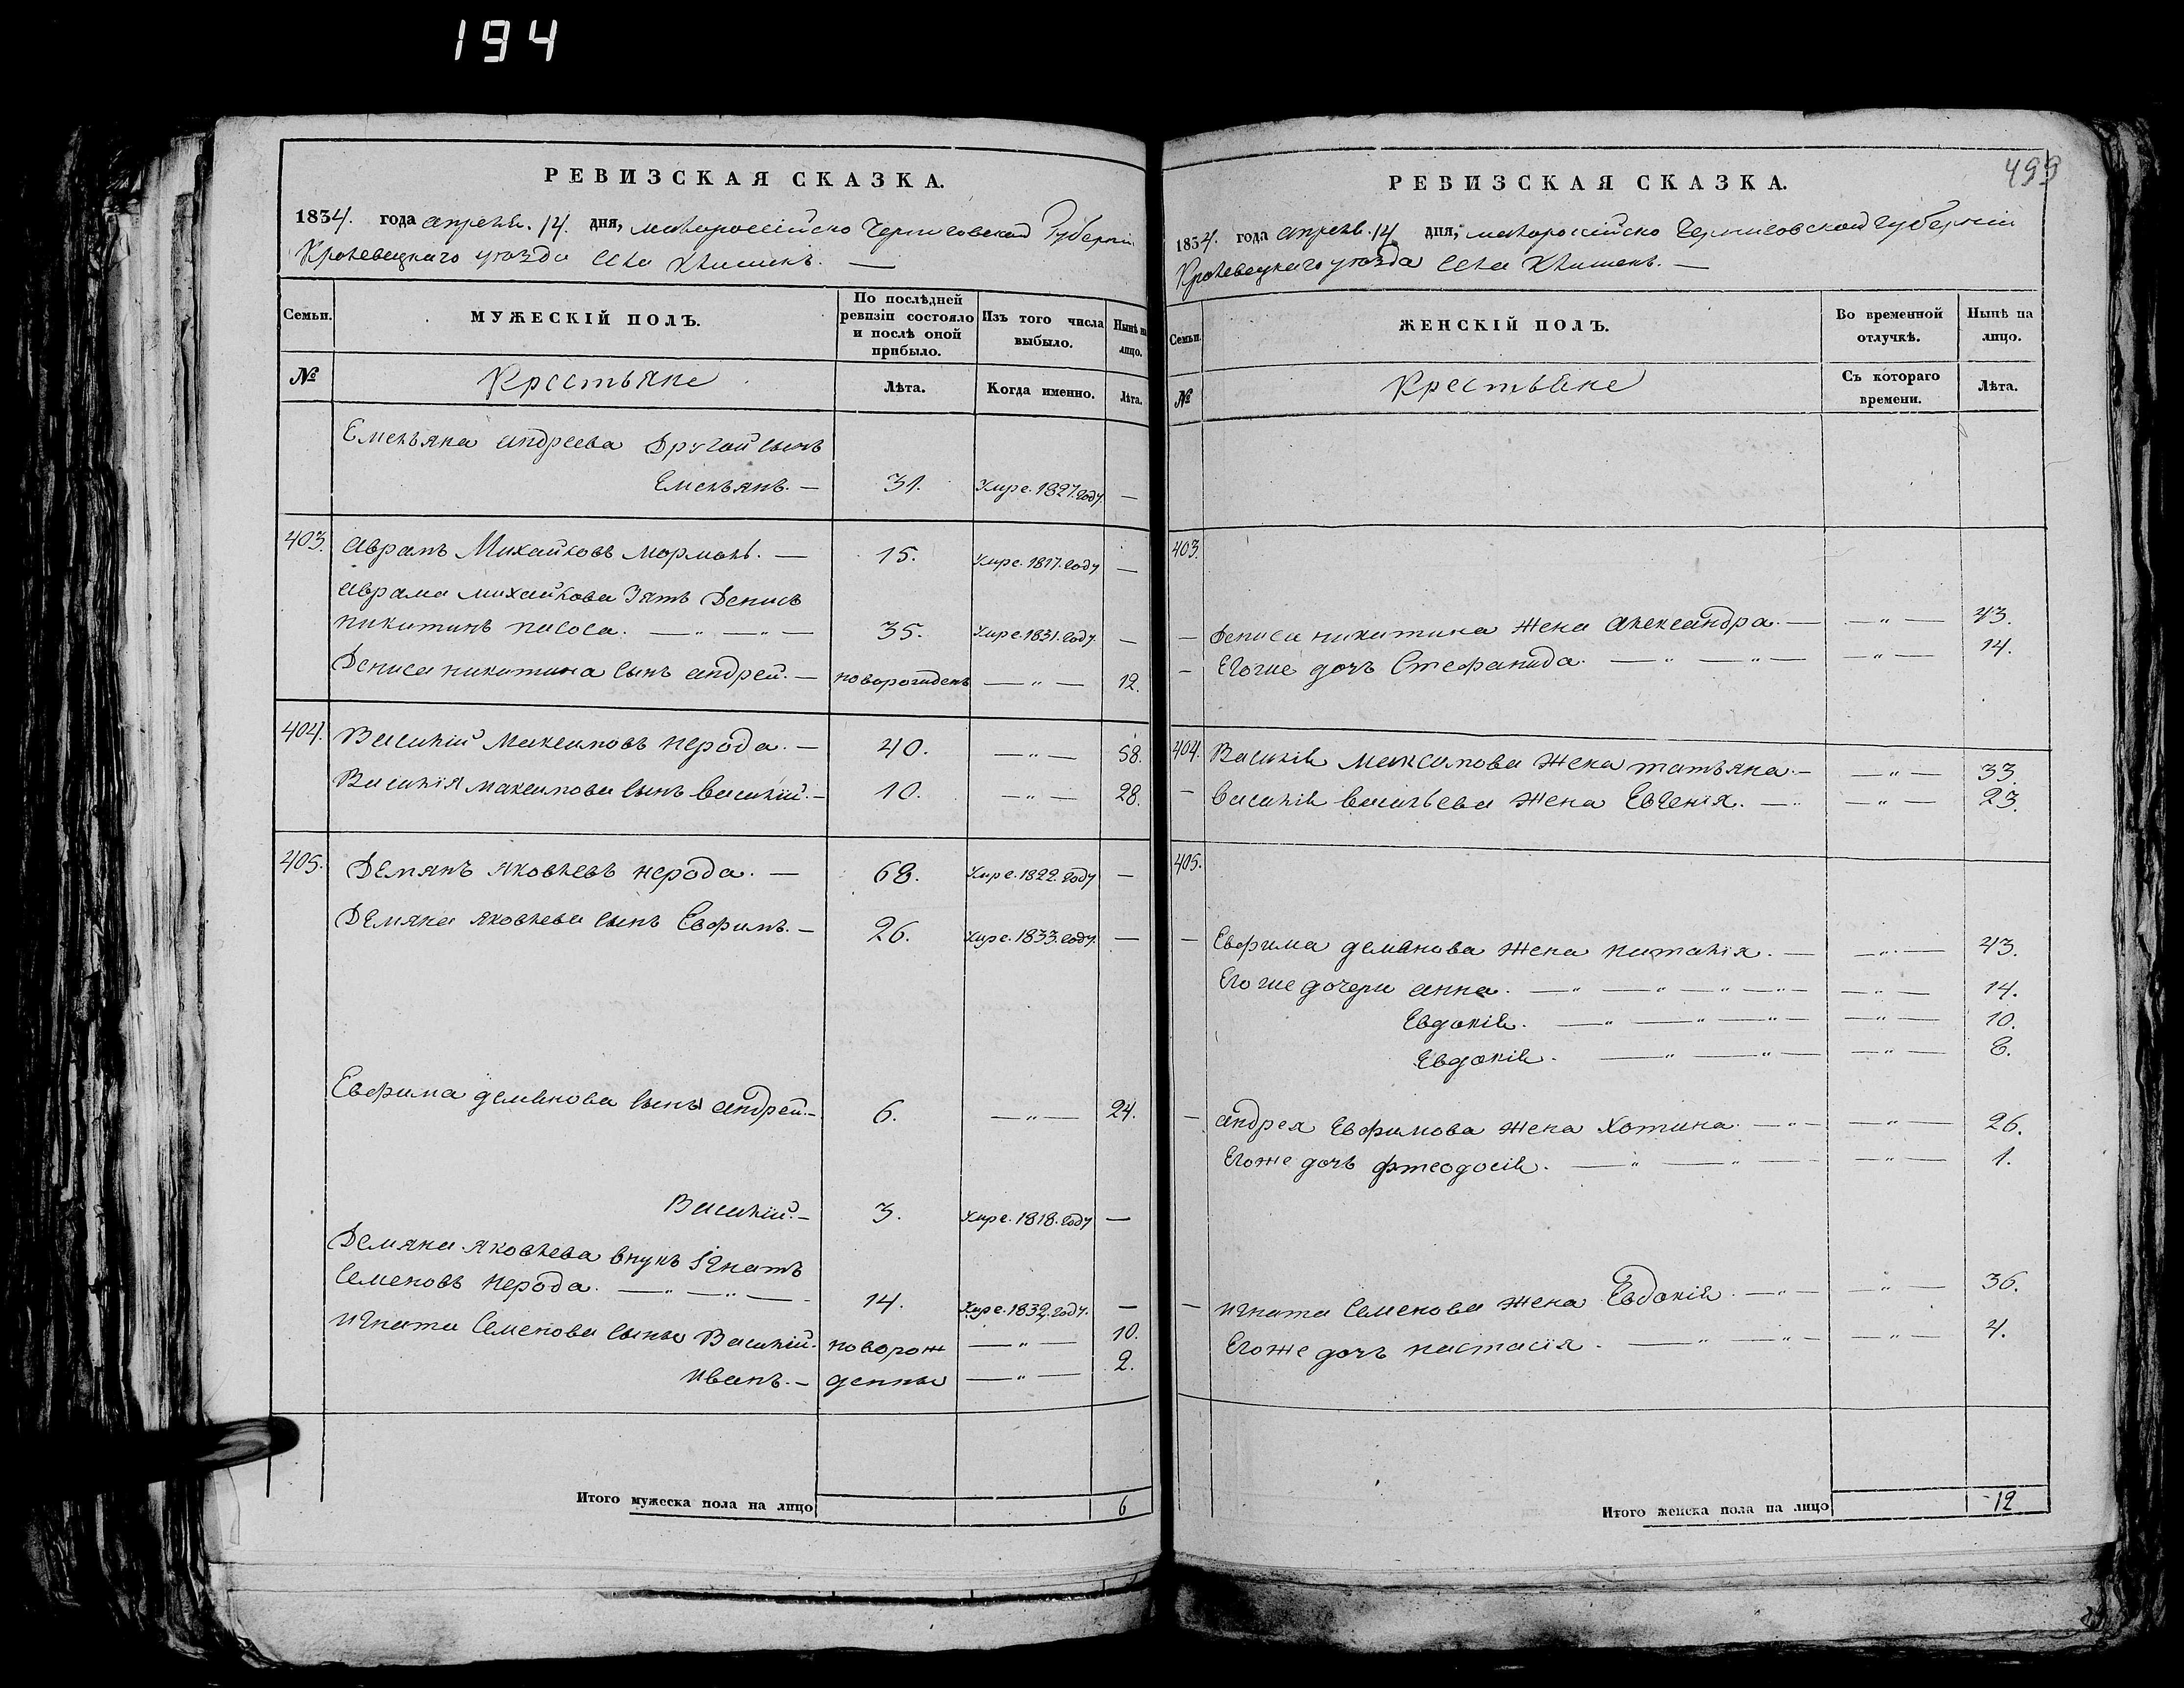 194
РЕВИЗСКАЯ СКАЗКА.
1834. года апреля. 14. дня, малороссійско Черниговской Губерніи
Кролевецкаго уѣзда села Клишекъ. —
Семьи.
МУЖЕСКІЙ ПОЛЪ.
По послѣдней ревизіи состояло и послѣ оной прибыло.
Изъ того числа выбыло.
Нынѣ на лицо.
№
Крестьяне
Лѣта.
Когда именно.
Лѣта.
Емельяна андреева Другой сынъ
Емельянъ. — 31. Умре. 1827. году —
403. Аврамъ Михайловъ мормоль. — 15. Умре. 1817. году —
Аврама михайлова Зять Денисъ
никитинъ насоса. — „ — „ — 35. Умре. 1831. году. —
Дениса никитина сынъ андрей. — новорожденъ — „ — 12.
404. Василій Максимовъ нерода. — 40. — „ — 58.
Василія максимова сынъ василій. — 10. — „ — 28.
405. Демянъ яковлевъ нерода. — 68. Умре. 1822. году —
Демяна яковлева сынъ Евфимъ. — 26. Умре. 1833. году. —
Евфима демянова сынъ андрей. — 6. — „ — 24.
Василій. — 3. Умре. 1818. году —
Демяна яковлева внукъ Игнатъ
Семеновъ нерода. — „ — „ — 14. Умре. 1832. году. —
игната Семенова сыны Василій. новорож — „ — 10.
иванъ. — денны — „ — 2.
Итого мужеска пола на лицо 6
499
РЕВИЗСКАЯ СКАЗКА.
1834. года апреля. 14. дня, малоросійско Черниговской губерніи
Кролевецкаго уѣзда села Клишекъ. —
Семьи.
ЖЕНСКІЙ ПОЛЪ.
Во временной отлучкѣ.
Нынѣ на лицо.
№
Крестьяне
Съ котораго времени.
Лѣта.
403.
— Дениса никитина жена александра. — — „ — 43.
— Егоже дочъ Стефанида. — „ — „ — — „ — 14.
404. Василія максимова жена татьяна. — — „ — 33.
— василія васильева жена Евгенія. — „ — „ — 23.
405.
— Евфима демянова жена наталія. — — „ — 43.
Егоже дочери анна. — „ — „ — „ — „ — — „ — 14.
Евдокія. — „ — „ — „ — — „ — 10.
Евдокія. — „ — „ — — „ — 8.
— андрея Евфимова жена хотина. — „ — — „ — 26.
Егоже дочъ фтеодосія. — „ — „ — — „ — 1.
— игната Семенова жена Евдокія. — „ — — „ — 36.
Егоже дочъ настасія. — „ — „ — — „ — 4.
Итого женска пола на лицо 12